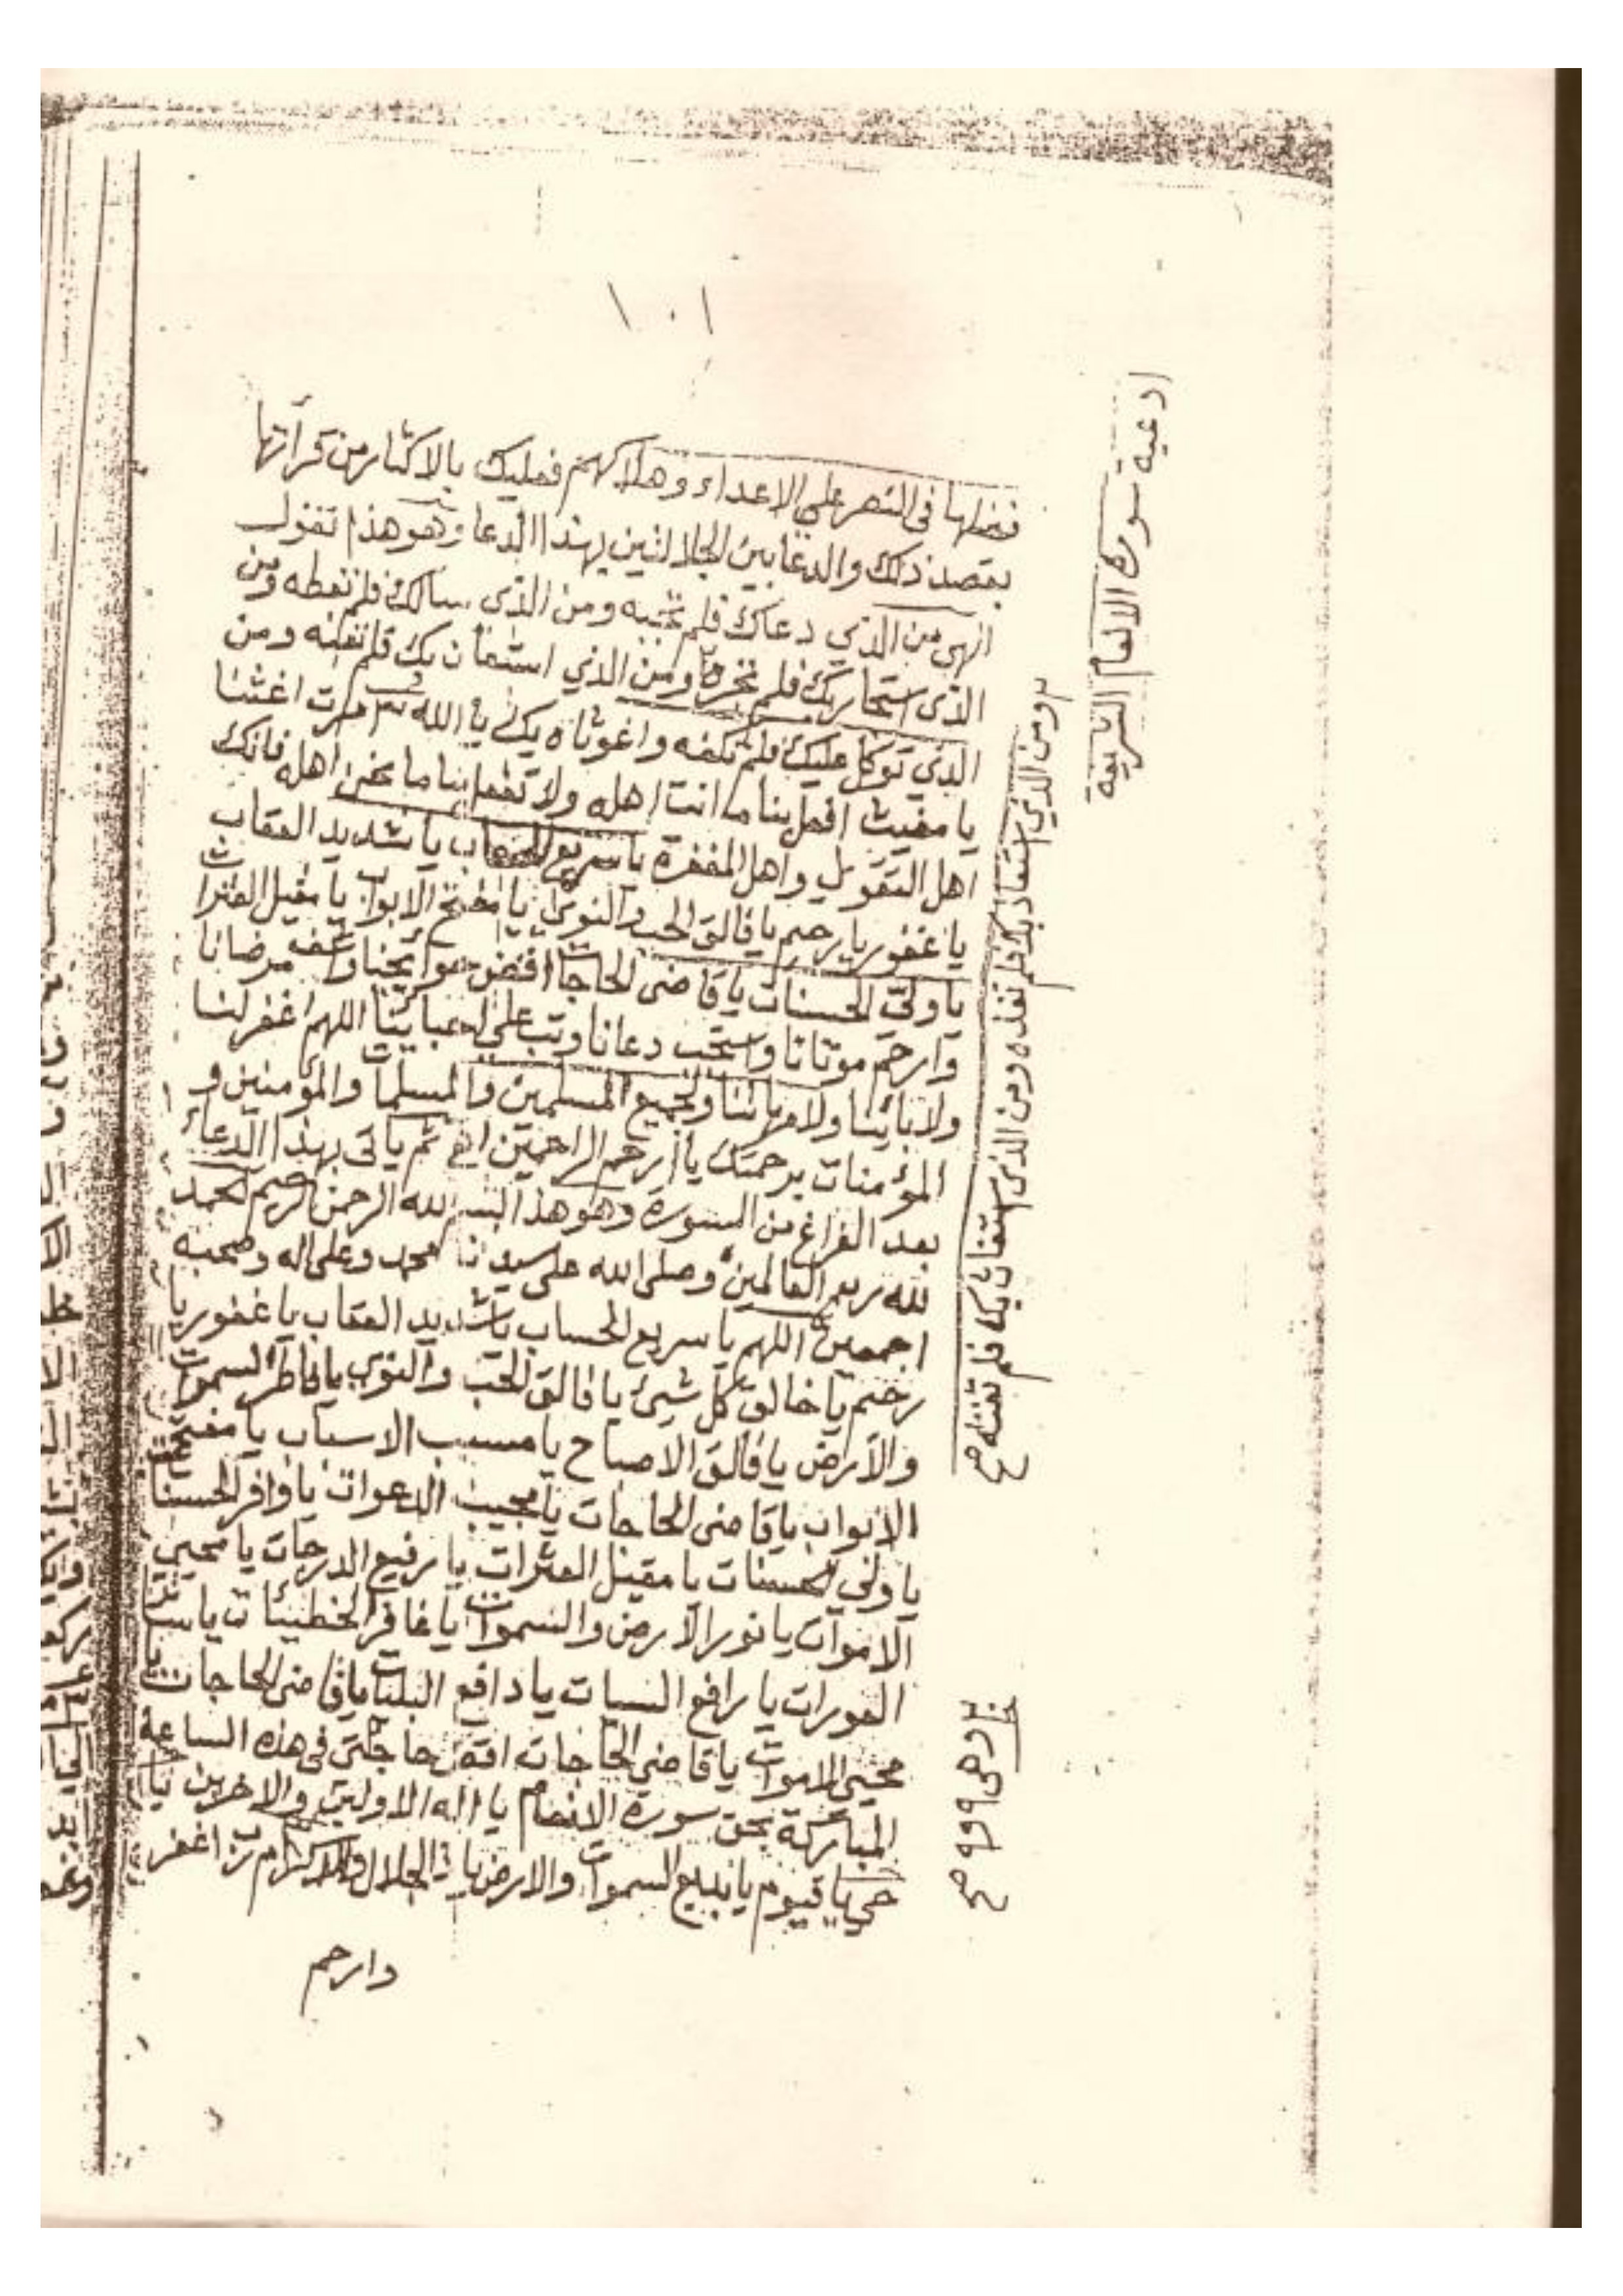 ١٠١
ادعية سورة الانعام الشريفة
فضلها فى النصر على الاعداء وهلاكهم فعليك بالاكثار من قرآتها
بقصد ذلك والدعا بين الجلالتين بهذا الدعا وهو هذا تقول
الهى من الذي دعاك فلم تجبه ومن الذى سالك فلم تعطه ومن
الذى استجار بك فلم تجره ومن الذي استعان بك فلم تعنه ومن
الذي توكل عليك فلم تكفه واغوثاه يا الله اغثنا
يا مغيث افعل بنا ما انت اهله ولا تفعل بنا ما نحن اهله فانك
اهل التقوى واهل المغفرة يا سريع الحساب يا شديد العقاب
يا غفور يا رحيم يا فالق الحب والنوى يا مفتح الابواب يا مقيل العثرات
يا ولي الحسنات يا قاضى الحاجات اقض حوائجنا واشف مرضانا
وارحم موتانا واستجب دعانا وتب على اللهم اغفر لنا
ولابائنا ولامهاتنا ولجميع المسلمين والمسلمات والمؤمنين و
المؤمنات برحمتك يا ارحم الراحمين ثم ياتى بهذا الدعاء
بعد الفراغ من السورة وهو هذا بسم الله الرحمن الرحيم الحمد
لله رب العالمين وصلى الله على سيدنا محمد وعلى اله وصحبه
اجمعين اللهم يا سريع الحساب يا شديد العقاب يا غفور يا
رحيم يا خالق كل شيئ يا فالق الحب والنوى يا فاطر السموات
والارض يا فالق الاصباح يا مسبب الاسباب يا مفتح
الابواب يا قاضى الحاجات يا مجيب الدعوات يا وافر الحسنات
يا ولي الحسنات يا مقيل العثرات يا رفيع الدرجات يا محيي
الاموات يا نور الارض والسموات يا غافر الخطيئات يا ساتر
العورات يا رافع السيات يا دافع البليات يا قاضى الحاجات يا
محيي الاموات يا قاضي الحاجات اقض حاجتى فى هذه الساعة
المباركة بحق سورة الانعام يا اله الاولين والاخرين يا
حي يا قيوم يا بديع السموات والارض يا ذا الجلال والاكرام رب اغفر
وارحم
ومن الذي استعاذ بك فلم تعذه ومن الذى استغاث بك فلم تغثه صح